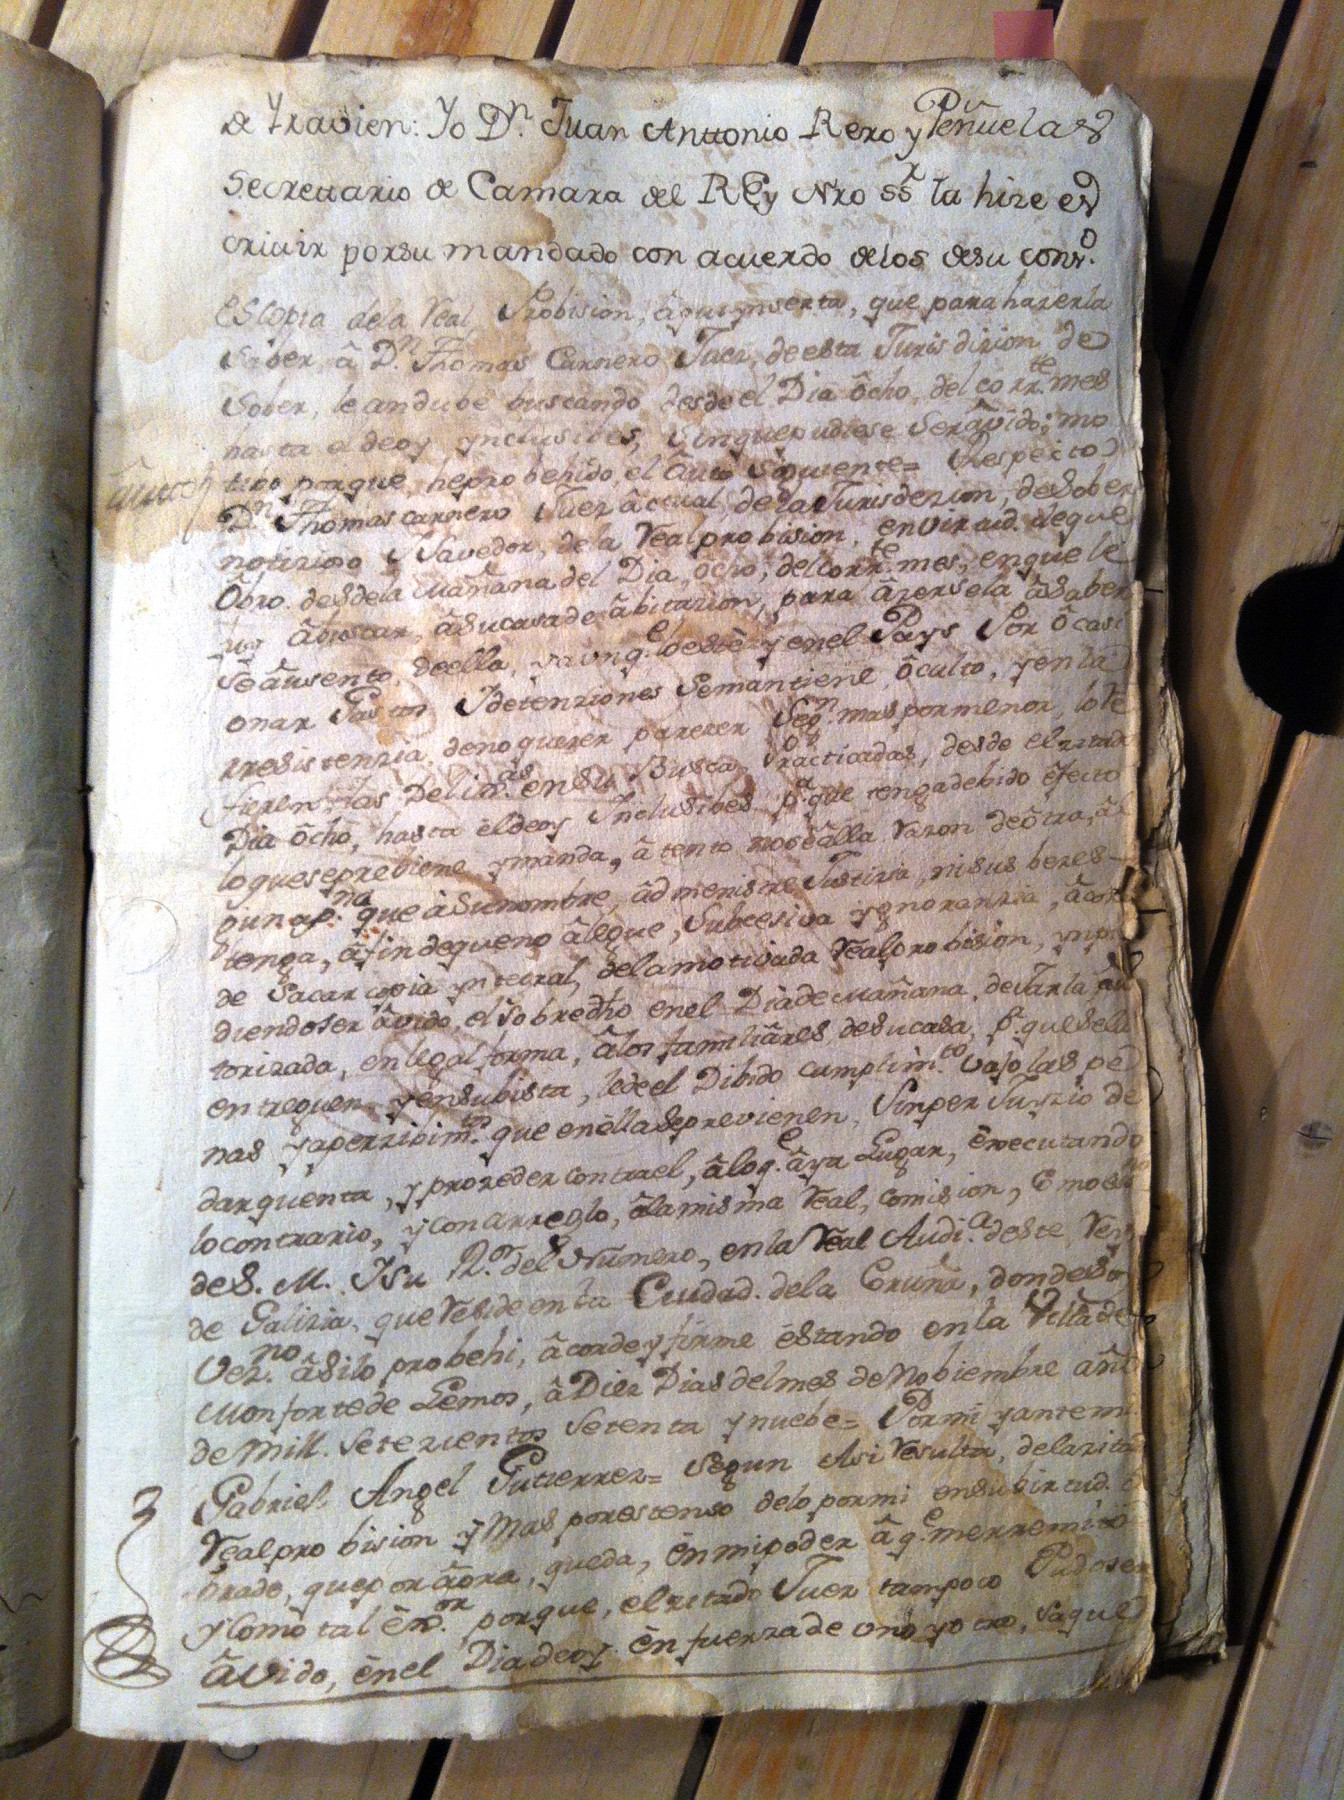 de Travien: Yo Dn. Juan Anttonio Rero y Peñuelas
Secrettario de Camara del REy Nro ssr la hize es
criuir por su mandado con acuerdo de los de su conso.
Es Copia de la Real Probision, âqui ynserta, que para hazerla
Saber, â Dn. Thomas Carnero Juez, de esta Jurisdizion de
Sober, le andube buscando desde el Dia ôcho, del corrte. mes
hasta el de oy ynclusives, sin que pudiese Ser âvido; mo
tibo porque, he probehido, el âuto siguiente= Respecto
âutto
Dn. Thomas carnero Juez âctual, de la Jurisdezion, de Sober
notizioso y Savedor, de la Real probision, en virtud. de que
Ôbro. desde la mañana del Dia, ôcho, del corrte. mes, en que le
âbuscar, â su casa de âbitazion, para âzersela â Saber
se âusento, de ella, y aunqe. lo este y en el Pays Por ôcasi
onar Gastos Ydetenziones Se mantiene ôculto, y en la
rresistenzia, de no querer parezer Segn. mas por menor, lo re
fieren las Delixas. en su Busca, Practicadas, desde el zitado
Dia ôcho, hasta êl de oy Inclusibes pa. que tenga debido êfecto
lo que se prebiene y manda, â tento no se âlla Razon de ôtra, âl
guna pna. que â Su nombre, âdmenistre Justizia, ni sus bezes
tenga, â fin de que no âlegue, Subcesiva ygnoranzia, âcor
de Sacar copia yntegral, de la motivada Real probision, y no pu
diendo ser âvido, el sobredho en el Dia de mañana, de Jarla âu
torizada, en legal forma, â los familiâres, de su casa, pa. que se la
entreguen y en su bista, le de el Dibido cumplimto. vajo las pe
nas y aperzibimtos. que en êlla se previenen, Sin perJuyzio de
dar quenta, y prozeder contra el, â lo qe. âya Lugar, êxecutando
lo contrario, y con arreglo, â la misma Real, comision,
de S. M. Y su Rr. del Numero, en la Real Audia. de este Rey
de Galizia, que Reside en la Ciudad. de la Coruña, donde so
Vezno. âsi lo probehi, âcorde y firme êstando en la Villa de
Monforte de Lemos, â Diez Dias del mes de Nobiembre año
de mill. Setezientos Setenta y nuebe= Por mi y ante mi.
Gabriel Angel Gutierrez= Segun Asi Resulta, de la zitada
Real probision y Mas por estenso de lo por mi en su birtud. o
brado, que por âora, queda, ên mi poder â qe. me rremito
y Como tal êxor. porque, el zitado Juez tampoco Pudo ser
âvido, ên el Dia de oy ên fuerza de uno y otro, saque